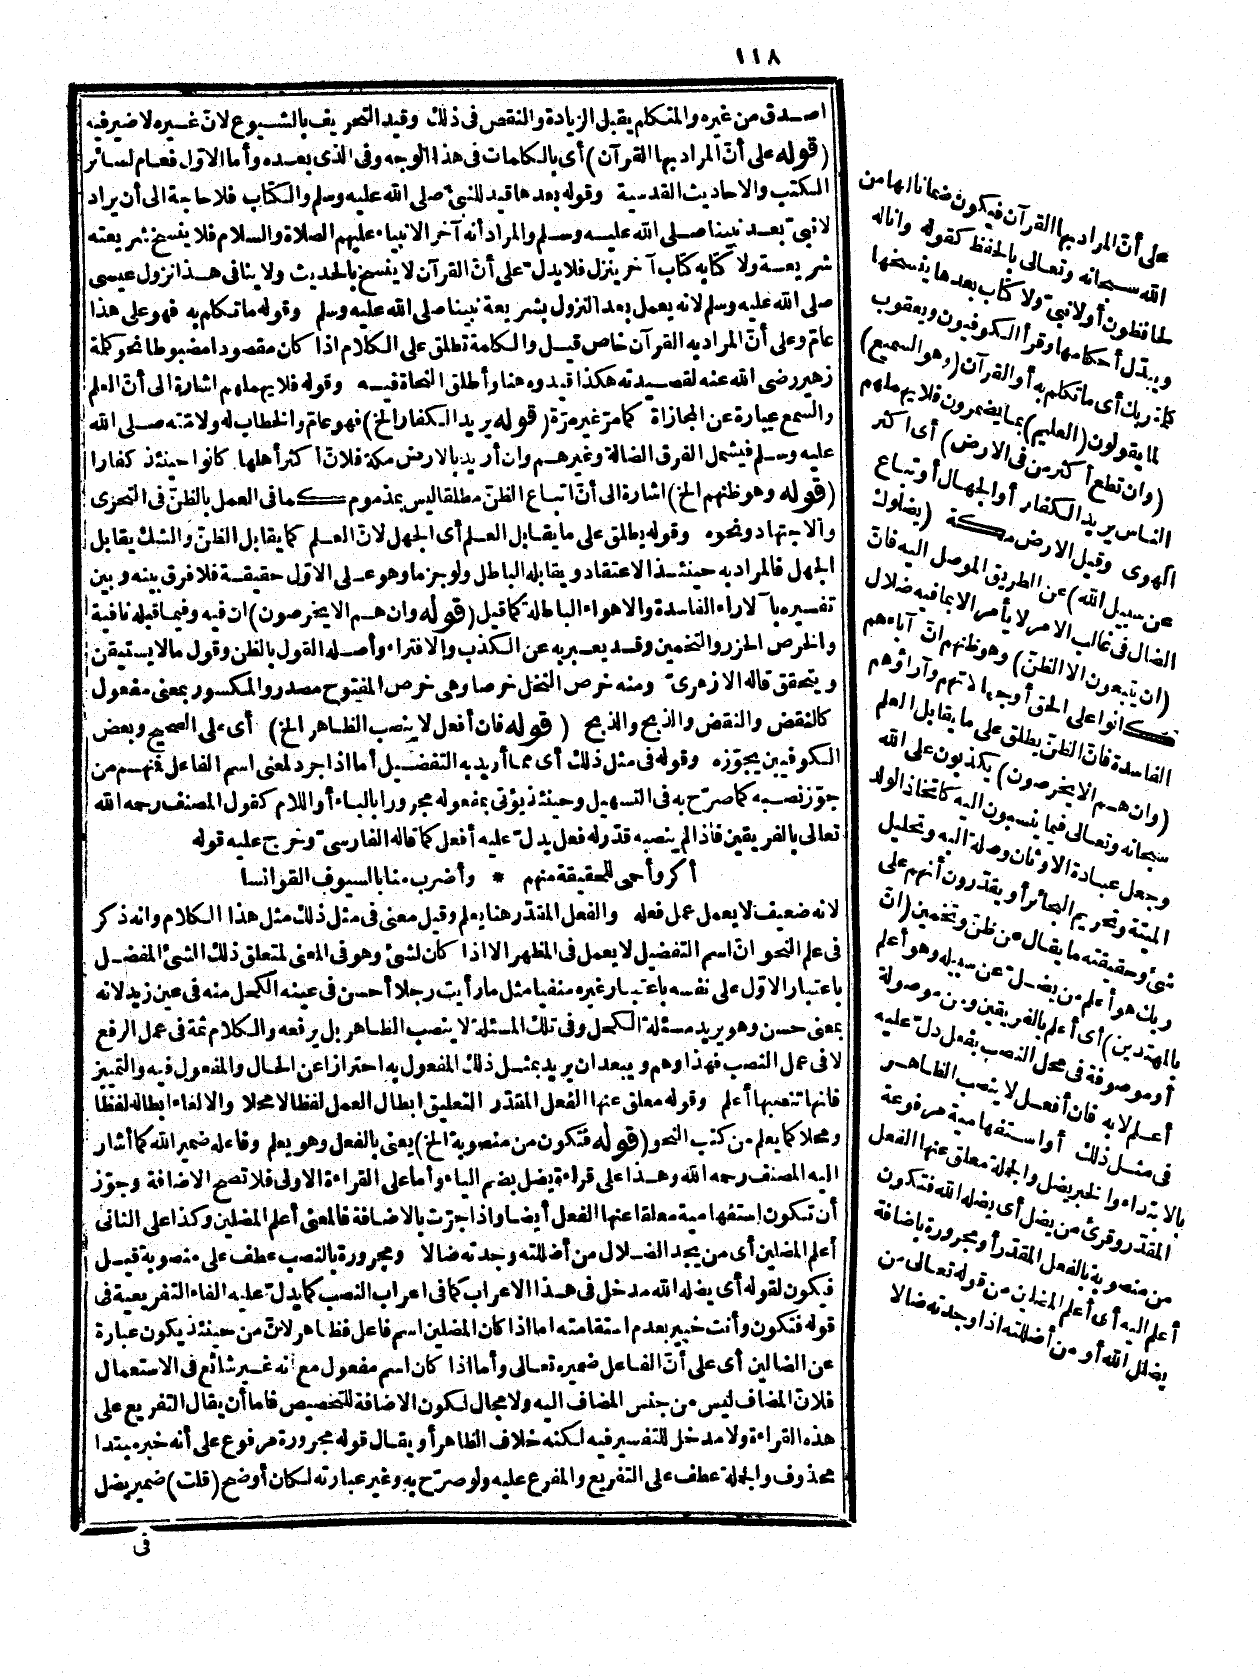 ١١٨
اصدق من غيره والمتكلم يقبل الزيادة والنقص فى ذلك وقيد التحريف بالشيوع لانّ غيره لا ضير فيه
(قوله على أنّ المراد بها القرآن) أى بالكلمات فى هذا الوجه وفى الذى بعده وأما الاوّل فعام لسائر
الكتب والاحاديث القدسية وقوله بعدها قيد للنبىّ صلى الله عليه وسلم والكتاب فلا حاجة الى أن يراد
لا نبىّ بعد نبينا صلى الله عليه وسلم والمراد أنه آخر الانبياء عليهم الصلاة والسلام فلا ينسخ شريعته
شريعة ولا كتابه كتاب آخر ينزل فلا يدلّ على أنّ القرآن لا ينسخ بالحديث ولا ينافى هذا نزول عيسى
صلى الله عليه وسلم لانه يعمل بعد النزول بشريعة نبينا صلى الله عليه وسلم وقوله ما تكلم به فهو على هذا
عامّ وعلى أنّ المراد به القرآن خاص قيل والكلمة تطلق على الكلام اذا كان مقصودا مضبوطا نحو كلمة
زهير رضى الله عنه لقصيدته هكذا قيدوه هنا وأطلق النحاة فيه وقوله فلا يهملهم اشارة الى أنّ العلم
والسمع عبارة عن المجازاة كما مرّ غير مرّة (قوله يريد الكفار الخ) فهو عامّ والخطاب له ولامّته صلى الله
عليه وسلم فيشمل الفرق الضالة وغيرهم وان أريد بالارض مكة فلانّ أكثر أهلها كانوا حينئذ كفارا
(قوله وهو ظنهم الخ) اشارة الى أنّ اتباع الظنّ مطلقا ليس بمذموم كما فى العمل بالظنّ فى التحرّى
والاجتهاد ونحوه وقوله يطلق على ما يقابل العلم أى الجهل لانّ العلم كما يقابل الظنّ والشك يقابل
الجهل فالمراد به حينئذ الاعتقاد ويقابله الباطل ولو جزما وهو على الاوّل حقيقة فلا فرق بينه وبين
تفسيره بالآراء الفاسدة والاهواء الباطلة كما قيل (قوله وان هم الا يخرصون) ان فيه وفيما قبله نافية
والخرص الحزر والتخمين وقد يعبر به عن الكذب والافتراء وأصله القول بالظن وقول ما لا يستيقن
ويتحقق قاله الازهرىّ ومنه خرص النخل خرصا وهى خرص المفتوح مصدر والمكسور بمعنى مفعول
كالنقض والنقض والذبح والذبح (قوله فان أفعل لا ينصب الظاهر الخ) أى على الصحيح وبعض
الكوفيين يجوّزه وقوله فى مثل ذلك أى مما أريد به التفضيل أما اذا جرد لمعنى اسم الفاعل فمنهم من
جوّز نصبه كما صرّح به فى التسهيل وحينئذ يؤتى بمفعوله مجرورا بالباء أو اللام كقول المصنف رحمه الله
تعالى بالفريقين فاذا لم ينصبه قدّر له فعل يدلّ عليه أفعل كما قاله الفارسىّ وخرج عليه قوله
أكر وأحمى للحقيقة منهم * وأضرب منا بالسيوف القوانسا
لانه ضعيف لا يعمل عمل فعله والفعل المقدّر هنا يعلم وقيل معنى فى مثل ذلك مثل هذا الكلام وانه ذكر
فى علم النحو انّ اسم التفضيل لا يعمل فى المظهر الا اذا كان لشئ وهو فى المعنى لمتعلق ذلك الشئ المفضل
باعتبار الاوّل على نفسه باعتبار غيره منفيا مثل ما رأيت رجلا أحسن فى عينه الكحل منه فى عين زيد لانه
بمعنى حسن وهو يريد مسئلة الكحل وفى تلك المسئلة لا ينصب الظاهر بل يرفعه والكلام ثمة فى عمل الرفع
لا فى عمل النصب فهذا وهم ويبعد ان يريد بمثل ذلك المفعول به احترازا عن الحال والمفعول فيه والتمييز
فانها تنصبها أعلم وقوله معلق عنها الفعل المقدّر التعليق ابطال العمل لفظا لا محلا والالغاء ابطاله لفظا
ومحلا كما يعلم من كتب النحو (قوله فتكون من منصوبة الخ) يعنى بالفعل وهو يعلم وفاعله ضمير الله كما أشار
اليه المصنف رحمه الله وهذا على قراءة يضل بضم الياء وأما على القراءة الاولى فلا تصح الاضافة وجوّز
أن تكون استفهامية معلقا عنها الفعل أيضا واذا جرّت بالاضافة فالمعنى أعلم المضلين وكذا على الثانى
أعلم المضلين أى من يجد الضلال من أضللته وجدته ضالا ومجرورة بالنصب عطف على منصوبة قيل
فيكون لقوله أى يضله الله مدخل فى هذا الاعراب كما فى اعراب النصب كما يدلّ عليه الفاء التفريعية فى
قوله فتكون وأنت خبير بعدم استقامته اما اذا كان المضلين اسم فاعل فظاهر لانّ من حينئذ يكون عبارة
عن الضالين أى على أنّ الفاعل ضميره تعالى وأما اذا كان اسم مفعول مع أنه غير شائع فى الاستعمال
فلانّ المضاف ليس من جنس المضاف اليه ولا مجال لكون الاضافة للتخصيص فاما أن يقال التفريع على
هذه القراءة ولا مدخل للتفسير فيه لكنه خلاف الظاهر أو يقال قوله مجرورة مرفوع على أنه خبر مبتدا
محذوف والجملة عطف على التفريع والمفرع عليه ولو صرّح به وغير عبارته لكان أوضح (قلت) ضمير يضل
فى
على أنّ المراد بها القرآن فيكون ضمانا لها من
الله سبحانه وتعالى بالحفظ كقوله وانا له
لحافظون أو لا نبىّ ولا كتاب بعدها ينسخها
ويبدّل أحكامها وقرأ الكوفيون ويعقوب
كلمة ربك أى ما تكلم به أو القرآن (وهو السميع)
لما يقولون (العليم) بما يضمرون فلا يهملهم
(وان تطع أكثر من فى الارض) أى أكثر
الناس يريد الكفار أو الجهال أو تباع
الهوى وقيل الارض مكة (يضلوك
عن سبيل الله) عن الطريق الموصل اليه فانّ
الضال فى غالب الامر لا يأمر الا بما فيه ضلال
(ان يتبعون الا الظنّ) وهو ظنهم انّ آباءهم
كانوا على الحق أو جهالاتهم وآراؤهم
الفاسدة فانّ الظنّ يطلق على ما يقابل العلم
(وان هم الا يخرصون) يكذبون على الله
سبحانه وتعالى فيما ينسبون اليه كاتخاذ الولد
وجعل عبادة الاوثان وصلة اليه وتحليل
الميتة وتحريم البحائر أو يقدّرون أنهم على
شئ وحقيقته ما يقال عن ظنّ وتخمين (انّ
ربك هو أعلم من يضلّ عن سبيله وهو أعلم
بالمهتدين) أى أعلم بالفريقين ومن موصولة
أو موصوفة فى محل النصب بفعل دلّ عليه
أعلم لا به فان أفعل لا ينصب الظاهر
فى مثل ذلك أو استفهامية مرفوعة
بالابتداء والخبر يضل والجملة معلق عنها الفعل
المقدّر وقرئ من يضل أى يضله الله فتكون
من منصوبة بالفعل المقدّر أو مجرورة باضافة
أعلم اليه أى أعلم المضلين من قوله تعالى من
يضلل الله أو من أضللته اذا وجدته ضالا